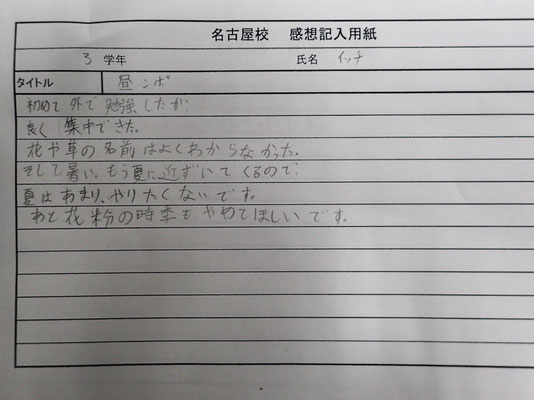 名古屋校 感想記入用紙
3 学年 氏名 イッチ
タイトル 昼ンポ
初めて外で勉強したが、
良く集中できた。
花や草の名前はよくわからなかった。
そして暑い。もう夏に近ずいてくるので
夏はあまり、やりたくないです。
あと花粉の時季も、やめてほしいです。